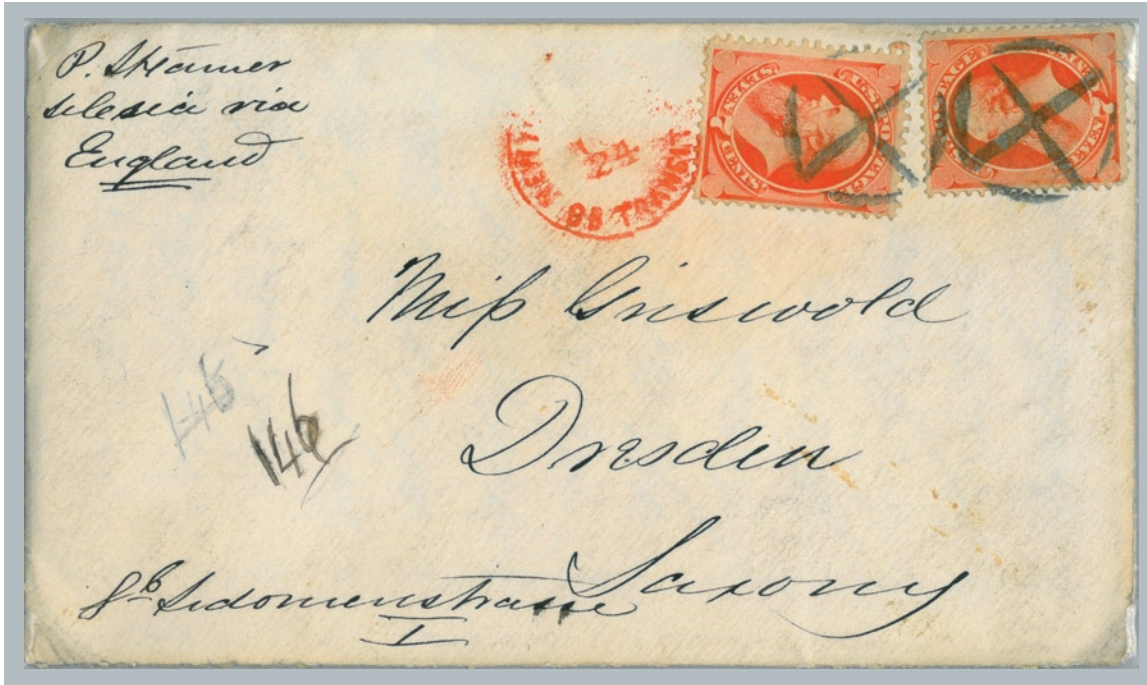 P. Steamer
Silesia via
England
NEW BR TRANSIT
24
U.S. POSTAGE
SEVEN CENTS
U.S. POSTAGE
SEVEN CENTS
Miss Griswold
Dresden
Saxony
146
146
8b Sidonienstrasse
I